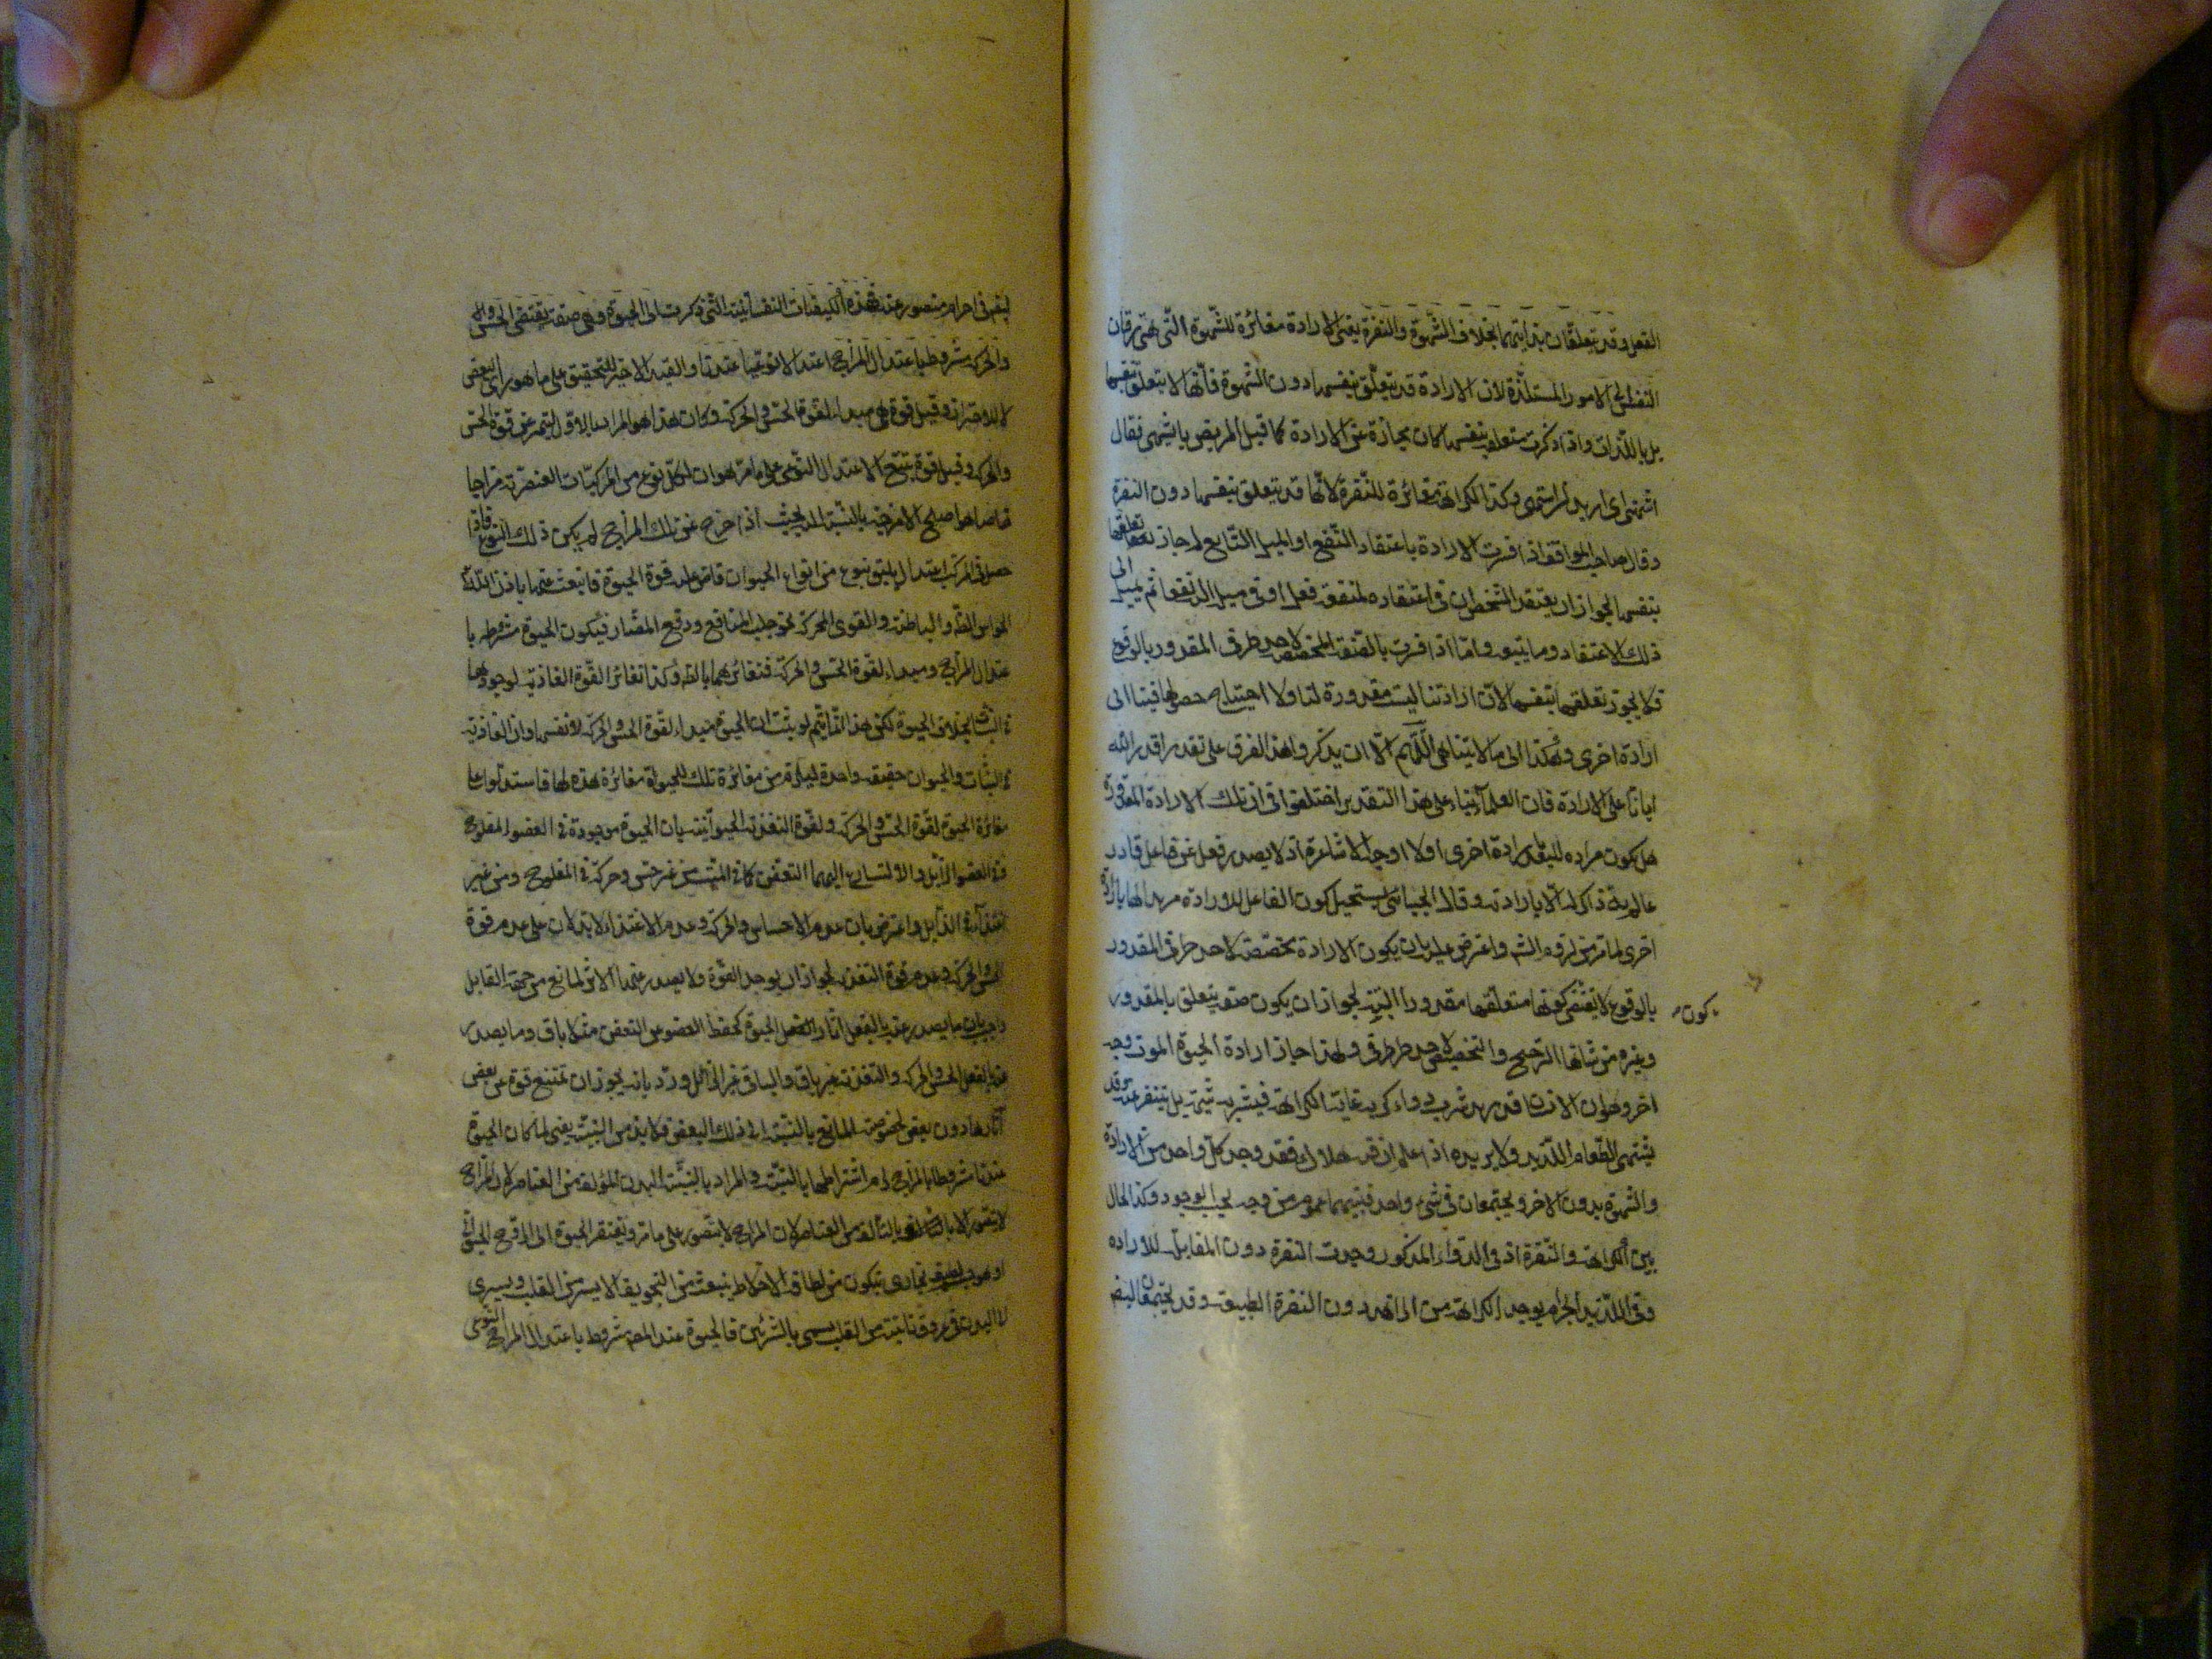 الفعل وقد يتعلقان بذاتيهما بخلاف الشهوة والنفرة يعنى الارادة مغائرة للشهوة التى هى توقان
النفس الى الامور المستلذة لان الارادة قد يتعلق بنفسها دون الشهوة فانها لا يتعلق بنفسها
بل باللذات واذا ذكرت متعلقة بنفسها كان مجازة عن الارادة كما قيل لمريض ما تشتهى فقال
اشتهى اى اريد ان اشتهى وكذا الكراهة مغائرة للنفرة لانها قد يتعلق بنفسها دون النفرة
وقال صاحب المواقف اذا فسرت الارادة باعتقاد النفع او الميل التابع له جاز تعلقها
بنفسها لجواز ان يعتقد الشخص ان فى اعتقاده لمنفعة فعل او فى ميل اليه نفعا ثم يميل الى
ذلك الاعتقاد وما يتبعه واما اذا فسرت بالصفة المخصصة لاحد طرفى المقدور بالوقوع
فلا يجوز تعلقها بنفسها لان ارادتنا ليست مقدورة لنا ولا احتياج حصولها فينا الى
ارادة اخرى وهكذا الى ما لا يتناهى اللهم الا ان يذكروا هذا الفرق على تقدير اقدار الله
ايانا على الارادة فان العلماء بناء على هذا التقدير اختلفوا فى ان تلك الارادة المقدورة
هل يكون مراده للعبد بارادة اخرى اولا اوجبه الاشاعرة اذ لا يصدر فعل عن فاعل قادر
عالم به ذاكر له الا بارادته وقال الجبائى يستحيل كون الفاعل للارادة مريدا لها بارادة
اخرى لما مر من لزوم التس واعترض عليه بان يكون الارادة مخصصة لاحد طرفى المقدور
بالوقوع لا يقتضى كونها متعلقها مقدورا البتة لجواز ان يكون صفة يتعلق بالمقدور
كون
وغيره من شانها الترجيح والتخصيص لاحد طرفى ولهذا جاز ارادة الحيوة الموت وجه
اخر وهو ان الانسان قد يريد شرب دواء كريه غاية الكراهة فيشربه ثم يتنفر عنه وقد
يشتهى الطعام اللذيذ ولا يريده اذا علم ان فيه هلاكه فقد وجد كل واحد من الارادة
والشهوة بدون الاخر ويجتمعان فى شئ واحد فبينهما عموم من وجه بحسب الوجود وكذا الحال
بين الكراهة والنفرة اذ فى الدواء المذكور وجدت النفرة دون المقابلة للاراده
وفى اللذيذ الحرام يوجد الكراهة من الزاهد دون النفرة الطبيعية وقد يجتمعان ايضا
وهى صفة يقتضى الحس
والحركة مشروطة باعتدال المزاج اعتدالا نوعيا عندنا والقيد الاخير للتحقيق على ما هو راى البعض
لا للاحتراز وقيل قوة هى مبدء لقوة الحس والحركة وكان هذا هو المراد بالاول ليتميز عن قوة الحس
والحركة وقيل قوة تتبع الاعتدال النوعى على ما مر هو ان لكل نوع من المركبات العنصرية مزاجا
خاصا هو اصلح الامزجة بالنسبة اليه بحيث اذا خرج عن ذلك المزاج لم يكن ذلك النوع فاذا
حصل فى المركب اعتدال يليق بنوع من انواع الحيوان فاض عليه قوة الحيوة فانبعث عنها باذن الله
الحواس الظاهرة والباطنة والقوى المحركة نحو جلب المنافع ودفع المضار فيكون الحيوة مشروطة با
عتدال المزاج ومبدء لقوة الحس والحركة فتغائرهما بالضرورة وكذا تغائر القوة الغاذية لوجودها
فى النبات بخلاف الحيوة لكن هذا انما يتم لو ثبت ان الحيوة مبدء لقوة الحس والحركة لا نفسها وان الغاذية
فى النبات والحيوان حقيقة واحدة ليلزم من مغائرة تلك للحيوة مغائرة هذه لها فاستدلوا على
مغائرة الحيوة لقوة الحس والحركة ولقوة التغذية الحيوانية بان الحيوة موجودة فى العضو المفلوج
وفى العضو الذابل والا لتسارع اليهما التعفن كما فى الميت من غير حس وحركة فى المفلوج ومن غير
اغتذاء فى الذابل واعترض بان عدم الاحساس والحركة وعدم الاغتذاء لا يدلان على عدم قوة
الحس والحركة وعدم قوة التغذية لجواز ان يوجد القوة ولا يصدر عنها الاثر لمانع من جهة القابل
واجيب بان ما يصدر عنه بالفعل اثار الحيوة كحفظ العضو عن التعفن مثلا باق وما يصدر
عنه بالفعل الحس والحركة والتغذية غير باق والباقى غير الزائل ورد بانه يجوز ان تمتنع قوة عن بعض
آثارها دون بعض لخصوصية المانع بالنسبة الى ذلك البعض فلا بد من البنية يعنى لما كان الحيوة
عندنا مشروطة بالمزاج لزم اشتراطها بالبنية والمراد بالبنية البدن المؤلف من العناصر لان المزاج
لا يتصور الا بالتاليف من العناصر لان المزاج لا يتصور على ما مر ويفتقر الحيوة الى الروح الحيوانى
وهو جسم لطيف بخارى يتكون من لطافة الاخلاط ينبعث من التجويف الايسر من القلب ويسرى
الى البدن فى عروق نابتة من القلب يسمى بالشرائين فالحيوة عند المعتزلة مشروطة باعتدال المزاج النوعى